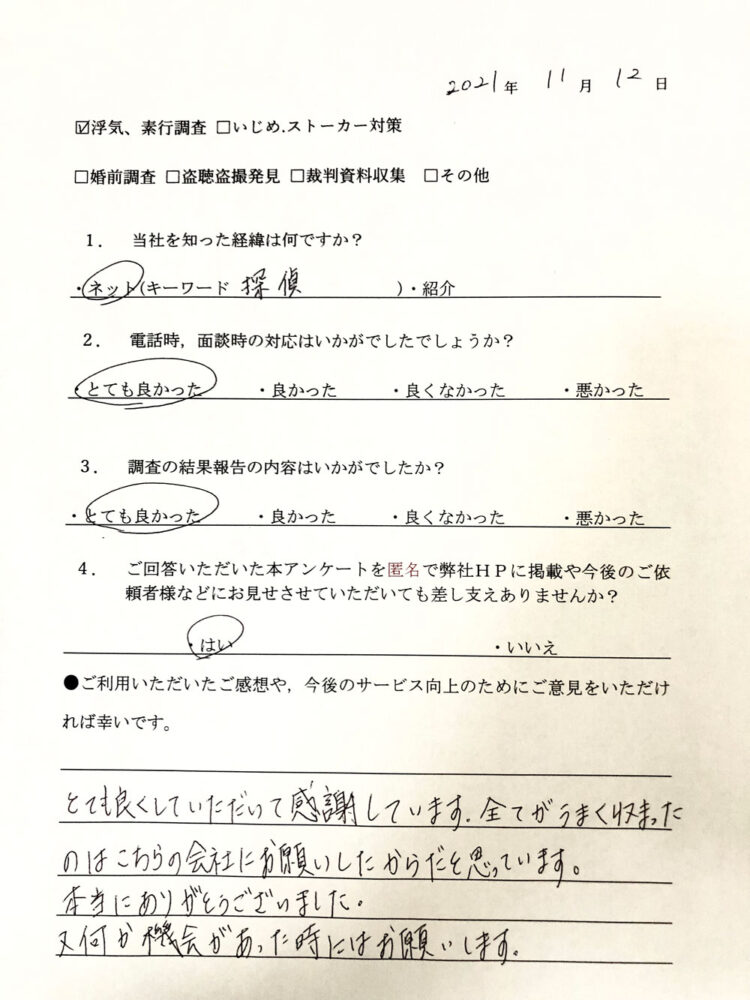 2021年 11月 12日
☑浮気、素行調査 □いじめ.ストーカー対策
□婚前調査 □盗聴盗撮発見 □裁判資料収集 □その他
１． 当社を知った経緯は何ですか？
・ネット(キーワード 探偵 )・紹介
２． 電話時，面談時の対応はいかがでしたでしょうか？
・とても良かった ・良かった ・良くなかった ・悪かった
３． 調査の結果報告の内容はいかがでしたか？
・とても良かった ・良かった ・良くなかった ・悪かった
４． ご回答いただいた本アンケートを匿名で弊社ＨＰに掲載や今後のご依
頼者様などにお見せさせていただいても差し支えありませんか？
・はい ・いいえ
●ご利用いただいたご感想や，今後のサービス向上のためにご意見をいただけ
れば幸いです。
とても良くしていただいて感謝しています。全てがうまく収まった
のはこちらの会社にお願いしたからだと思っています。
本当にありがとうございました。
又何か機会があった時にはお願いします。